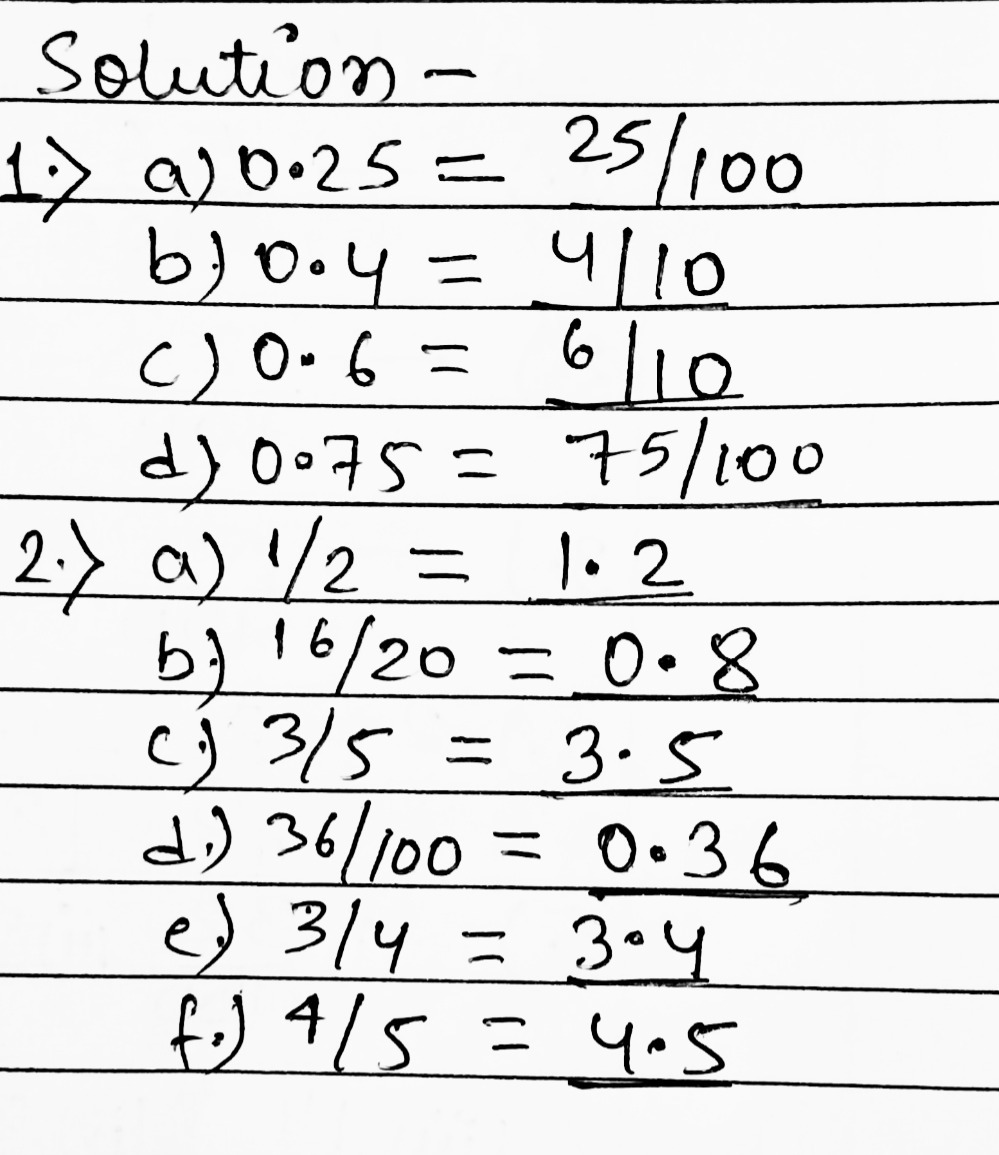 Solution -
1.> a) 0.25 = 25/100
b.) 0.4 = 4/10
c) 0.6 = 6/10
d) 0.75 = 75/100
2.> a) 1/2 = 1.2
b.) 16/20 = 0.8
c.) 3/5 = 3.5
d.) 36/100 = 0.36
e.) 3/4 = 3.4
f.) 4/5 = 4.5